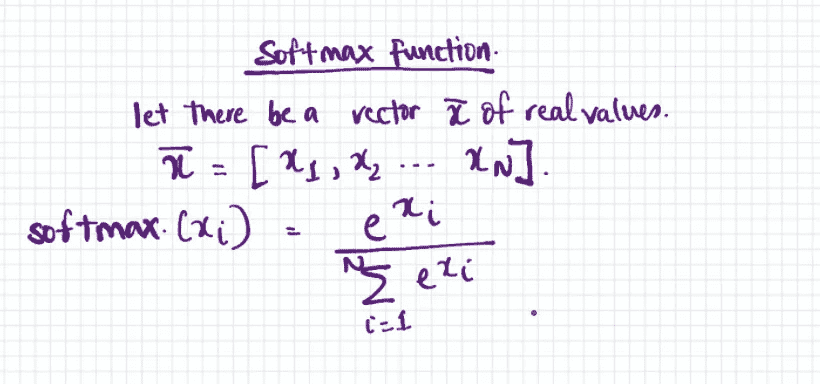 Softmax function.
let there be a vector x̄ of real values.
x̄ = [ x₁, x₂ ... x_N ].
softmax.(xᵢ) = e^{xᵢ} / N∑i=1 e^{xᵢ}